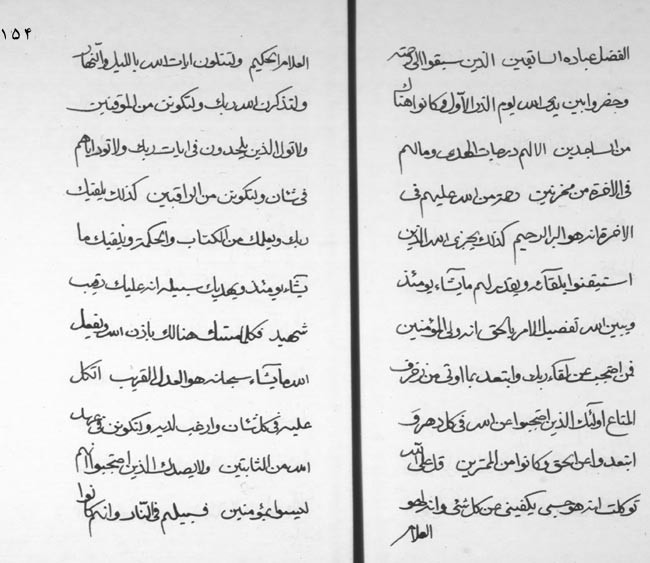 ١٥۴
الفضل عباده السابقين الذين سبقوا الی رحمته
وحضروا بين يدی الله يوم الذر الأول وكانوا هناك
من الساجدين الا لهم درجات الهدی ومالهم
فی الاخرة من محزنين رحمة من الله عليهم فی
الاخرة انه هو البر الرحيم كذلك يجزی الله الذين
استيقنوا بلقائه ويقدر لهم مايشاء يومئذ
ويبين الله تفصيل الامر بالحق انه ولی المؤمنين
فمن احتجب عن لقاء ربك وابتعد بما اوتی من زخرف
المتاع اولئك الذين احتجبوا عن الله فی كل دهر و
ابتعدوا عن الحق وكانوا من الممترين قل علی الله
توكلت انه هو حسبی يكفينی عن كل شئ وانه لهو
العلام
العلام الحكيم ولتتلون ايات الله بالليل والنهار
ولتذكرن الله ربك ولتكونن من الموقنين
ولا تول الذين يلحدون فی ايات ربك ولا تود اياهم
فی شان ولتكونن من الراقبين كذلك يلقيك
ربك ويعلمك من الكتاب والحكمة ويلقيك ما
يشاء يومئذ ويهديك سبيله انه عليك رقيب
شهيد فكل امسك هنالك باذن الله ويفعل
الله مايشاء سبحانه هو العدل القريب اتكل
عليه فی كل شان وارغب لديه ولتكونن فی عهد
الله من الثابتين ولا يصدك الذين احتجبوا انهم
ليسوا بمؤمنين فسبيلهم فی النار وانهم كانوا